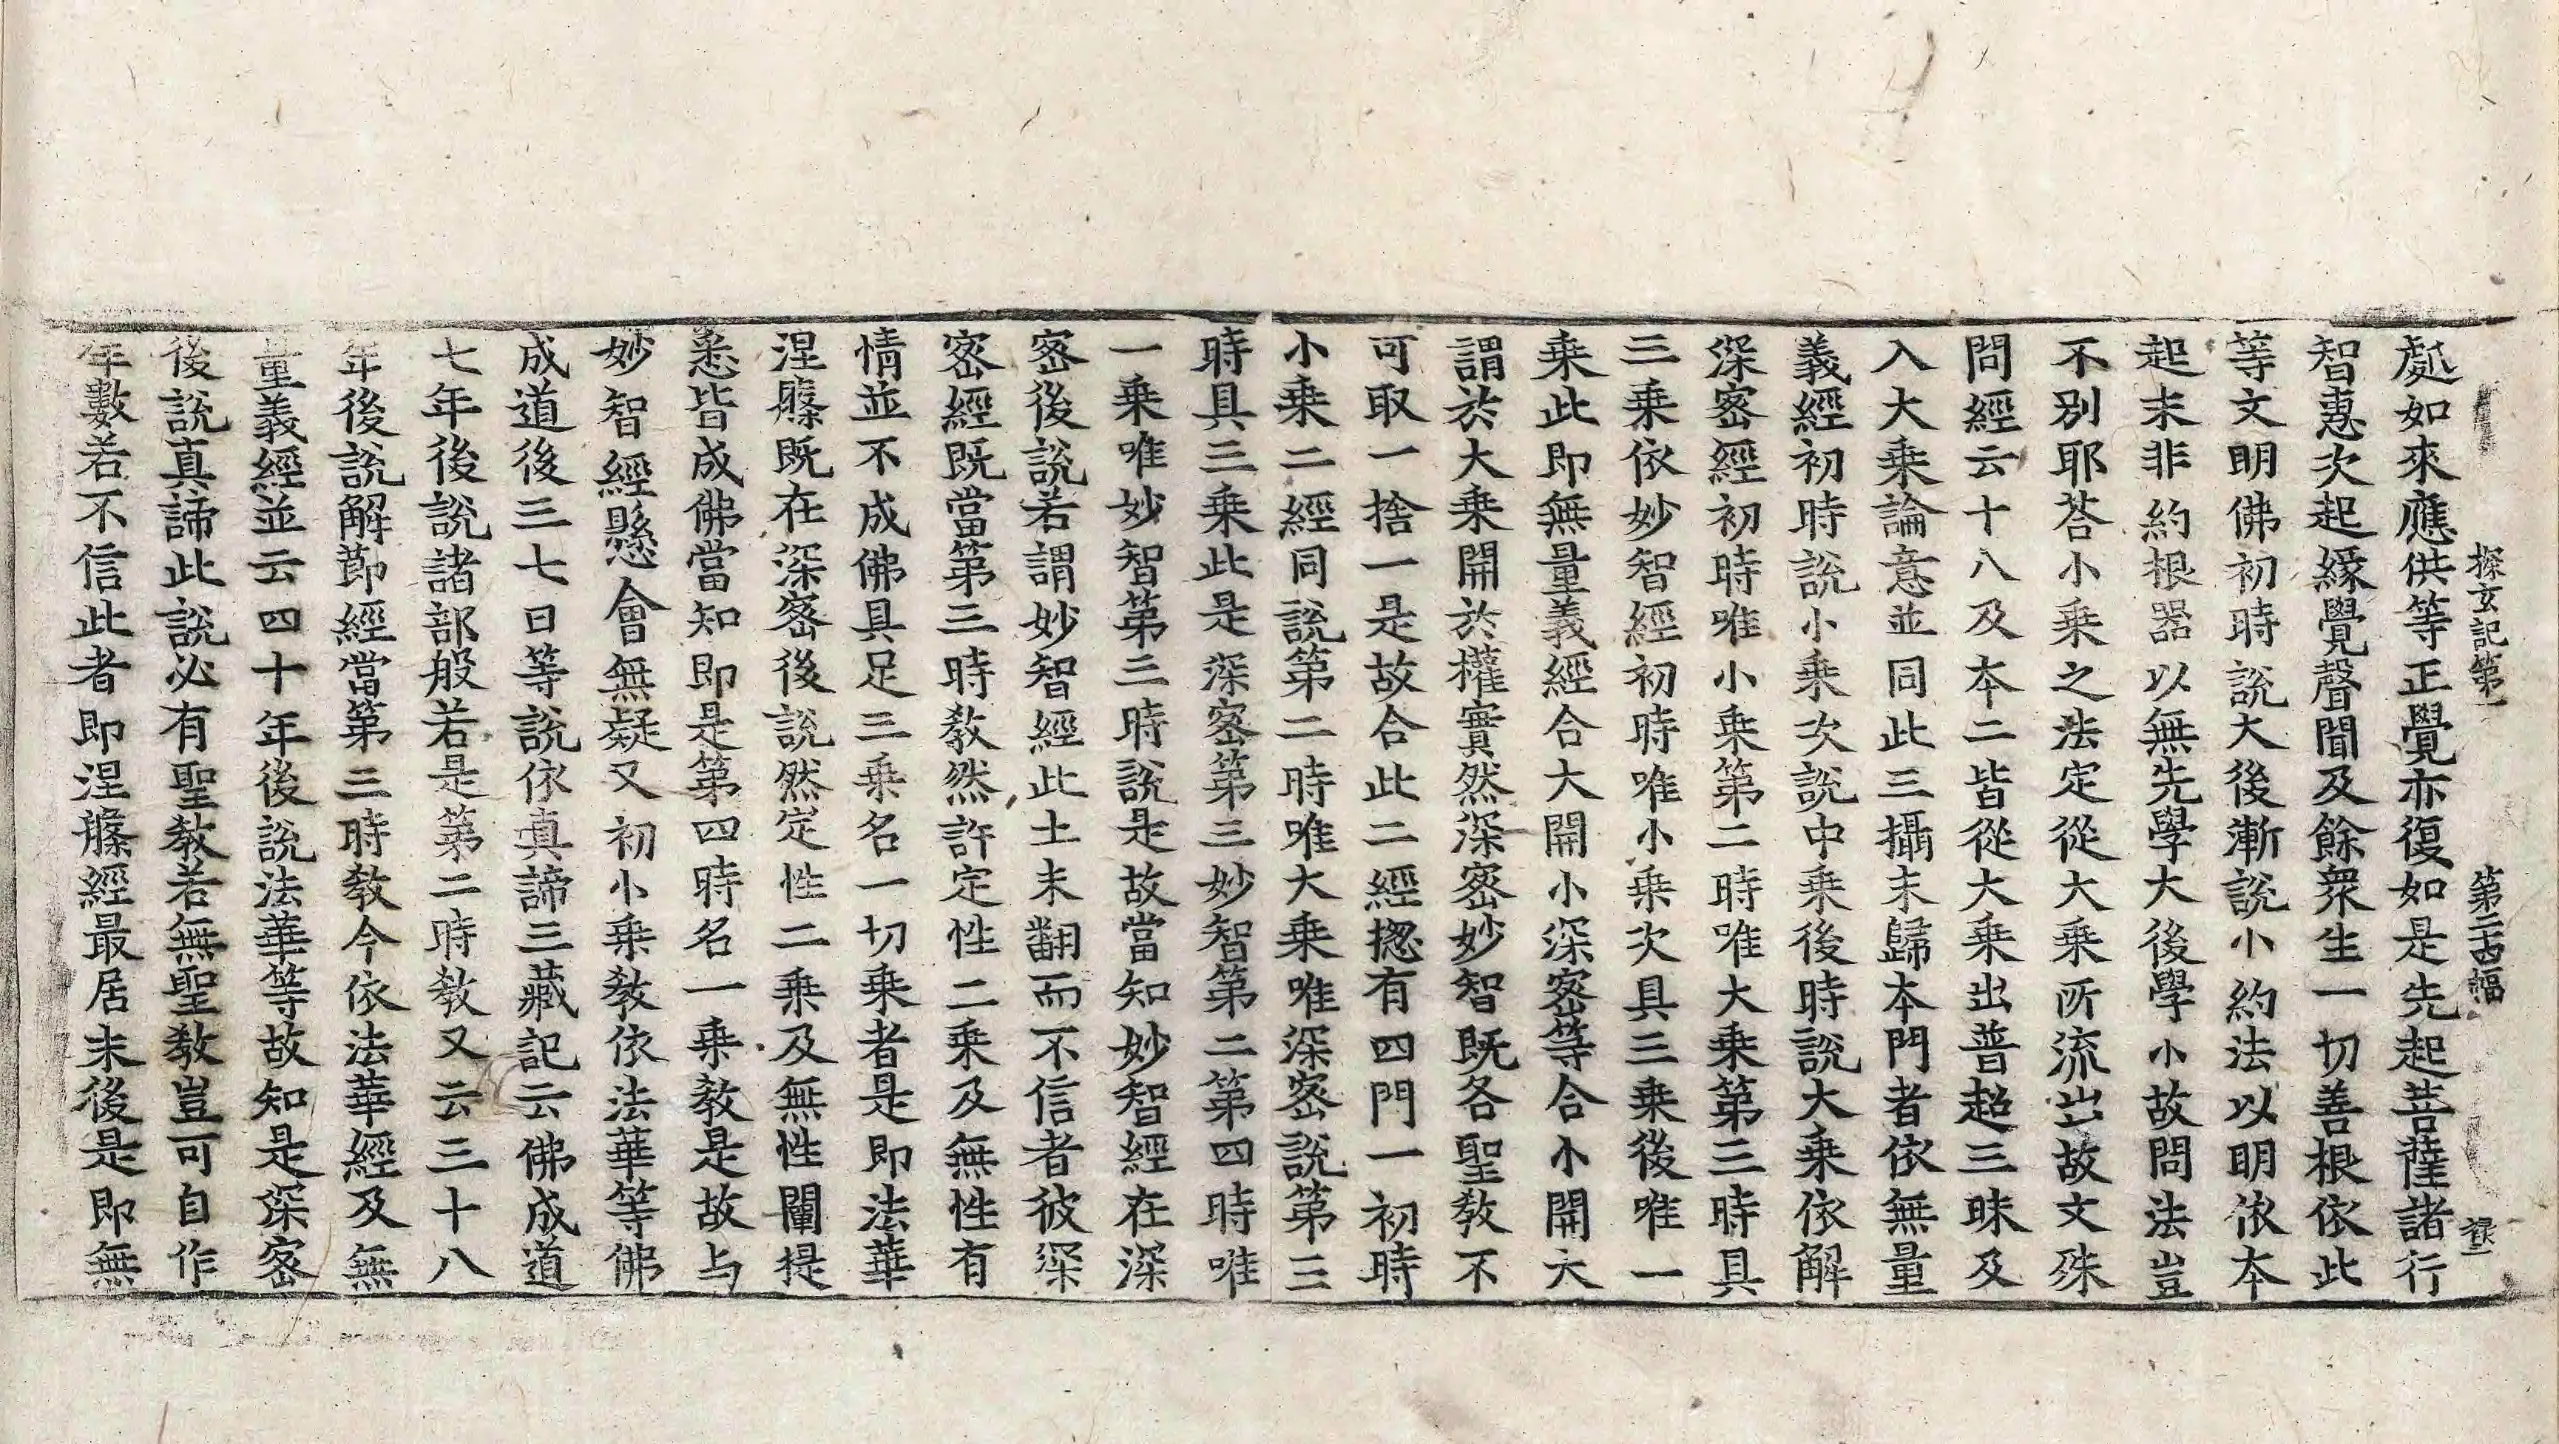 探玄記第一 第二十四幅
處如來應供等正覺亦復如是先起菩薩諸行
智惠次起緣覺聲聞及餘衆生一切善根依此
等文明佛初時說大後漸說小約法以明依本
起末非約根器以無先學大後學小故問法豈
不別耶荅小乗之法定從大乗所流出故文殊
問經云十八及本二皆從大乗出普超三昧及
入大乗論意並同此三攝末歸本門者依無量
義經初時說小乗次說中乗後時說大乗依解
深密經初時唯小乗第二時唯大乗第三時具
三乗依妙智經初時唯小乗次具三乗後唯一
乗此即無量義經合大開小深密等合小開大
謂於大乗開於權實然深密妙智既各聖敎不
可取一捨一是故合此二經揔有四門一初時
小乗二經同說第二時唯大乗唯深密說第三
時具三乗此是深密第三妙智第二第四時唯
一乗唯妙智第三時說是故當知妙智經在深
密後說若謂妙智經此土未翻而不信者彼深
密經既當第三時敎然許定性二乗及無性有
情並不成佛具足三乗名一切乗者是即法華
涅槃既在深密後說然定性二乗及無性闡提
悉皆成佛當知即是第四時名一乗敎是故与
妙智經懸會無疑又初小乗敎依法華等佛
成道後三七日等說依真諦三藏記云佛成道
七年後說諸部般若是第二時敎又云三十八
年後說解節經當第三時敎今依法華經及無
量義經並云四十年後說法華等故知是深密
後說真諦此說必有聖敎若無聖敎豈可自作
年數若不信此者即涅槃經最居末後是即無